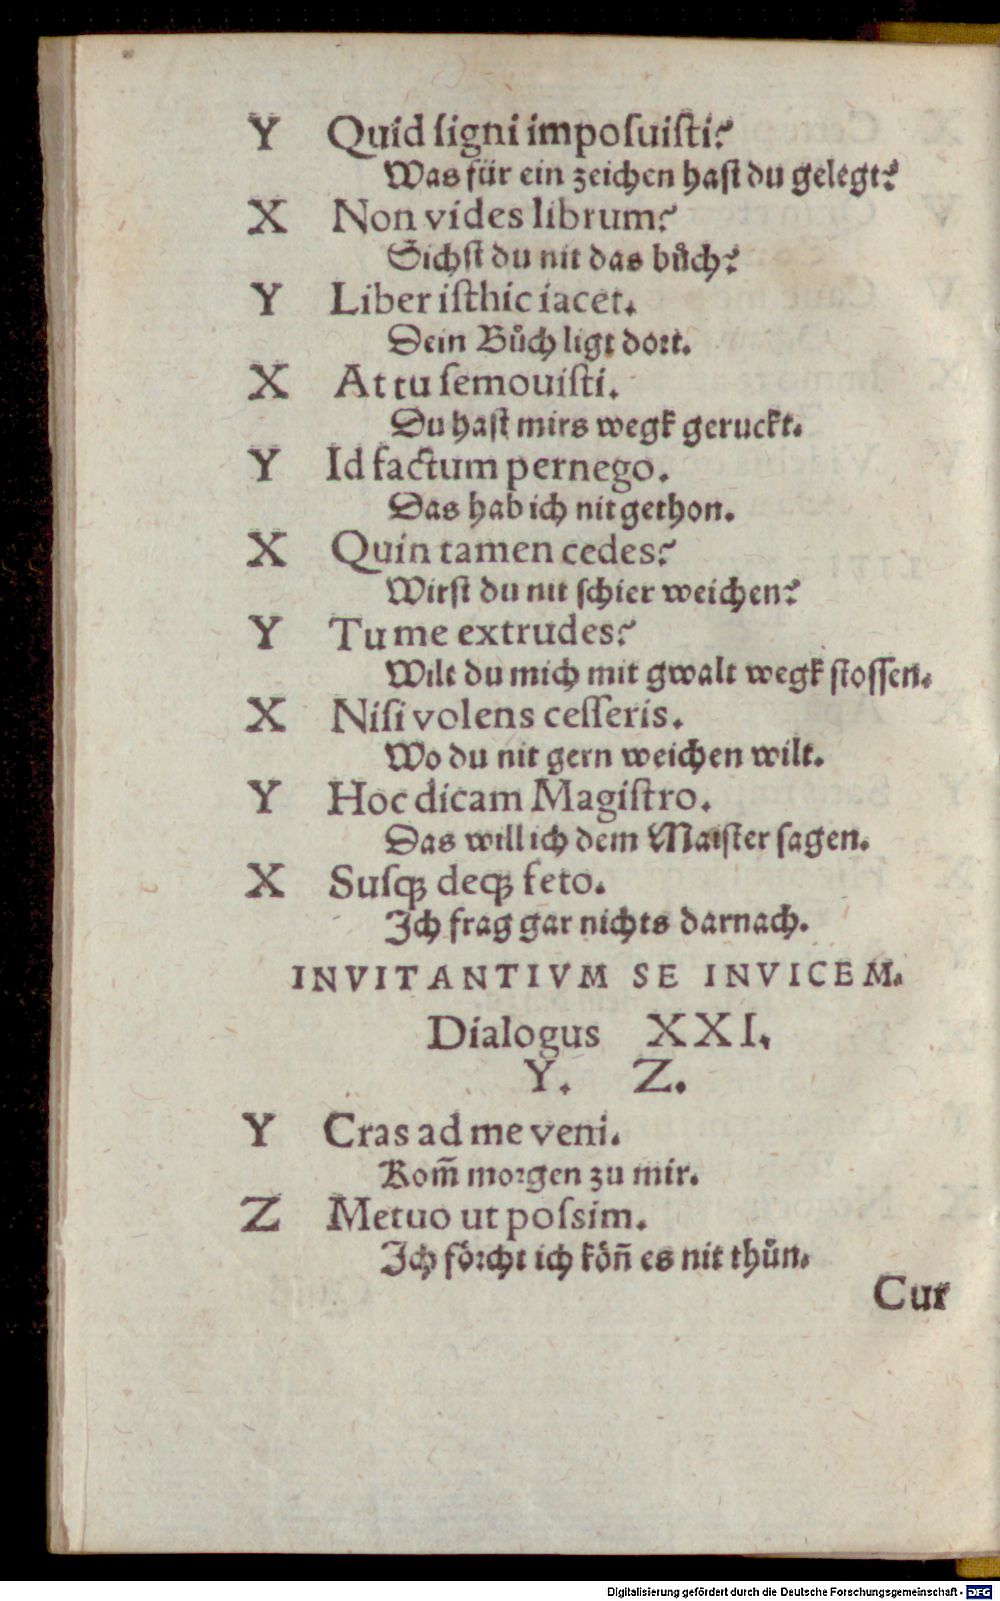 Y Quid ſigni impoſuiſti?
Was für ein zeichen haſt du gelegt?
X Non vides librum?
Sichſt du nit das bůch?
Y Liber iſthic iacet.
Dein Bůch ligt dort.
X At tu ſemouiſti.
Du haſt mirs wegk geruckt.
Y Id factum pernego.
Das hab ich nit gethon.
X Quin tamen cedes?
Wirſt du nit ſchier weichen?
Y Tu me extrudes?
Wilt du mich mit gwalt wegk ſtoſſen.
X Niſi volens ceſſeris.
Wo du nit gern weichen wilt.
Y Hoc dicam Magiſtro.
Das will ich dem Maiſter ſagen.
X Suſqꝫ deqꝫ feto.
Ich frag gar nichts darnach.
INVITANTIVM SE INVICEM.
Dialogus XXI.
Y. Z.
Y Cras ad me veni.
Kom̃ morgen zu mir.
Z Metuo ut poſsim.
Ich förcht ich köñ es nit thůn.
Cur
Digitalisierung gefördert durch die Deutsche Forschungsgemeinschaft - DFG